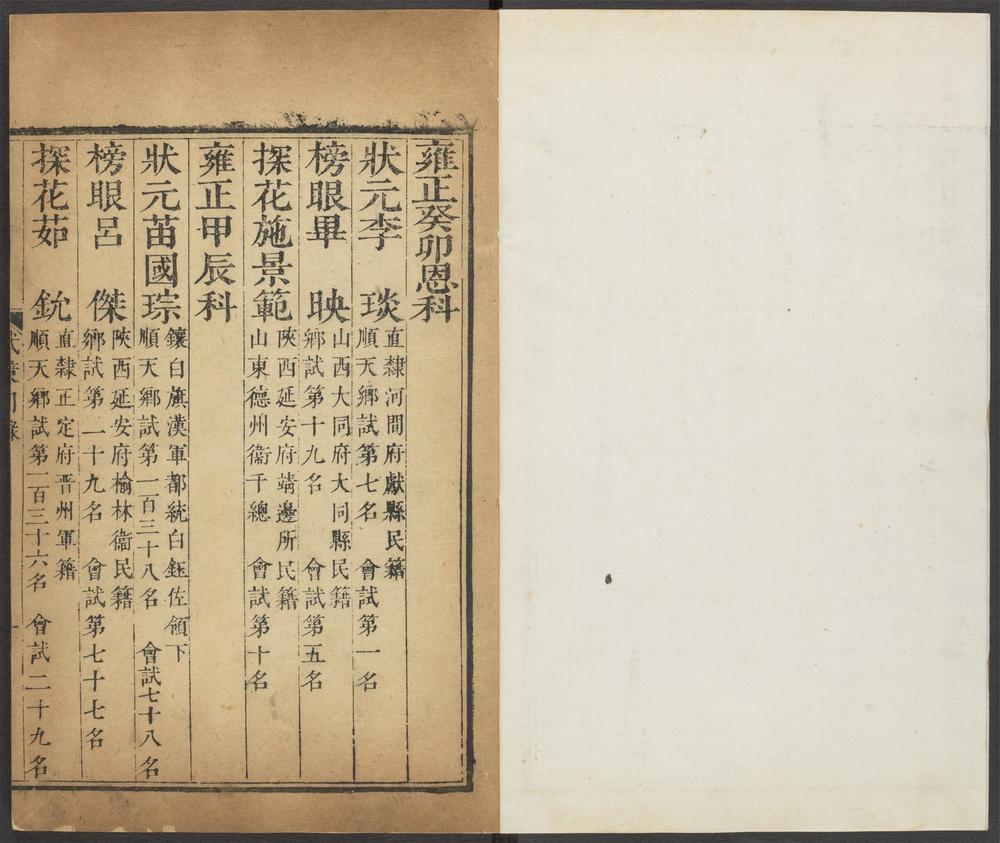 雍正癸卯恩科
狀元李　琰
直隸河間府獻縣民籍
順天鄉試第七名　會試第一名
榜眼畢　映
山西大同府大同縣民籍
鄉試第十九名　會試第五名
探花施景範
陝西延安府靖邊所民籍
山東德州衞千總　會試第十名
雍正甲辰科
狀元苗國琮
鑲白旗漢軍都統白鈺佐領下
順天鄉試第一百三十八名　會試七十八名
榜眼呂　傑
陝西延安府榆林衞民籍
鄉試第一十九名　會試第七十七名
探花茹　鈗
直隸正定府晋州軍籍
順天鄉試第一百三十六名　會試二十九名